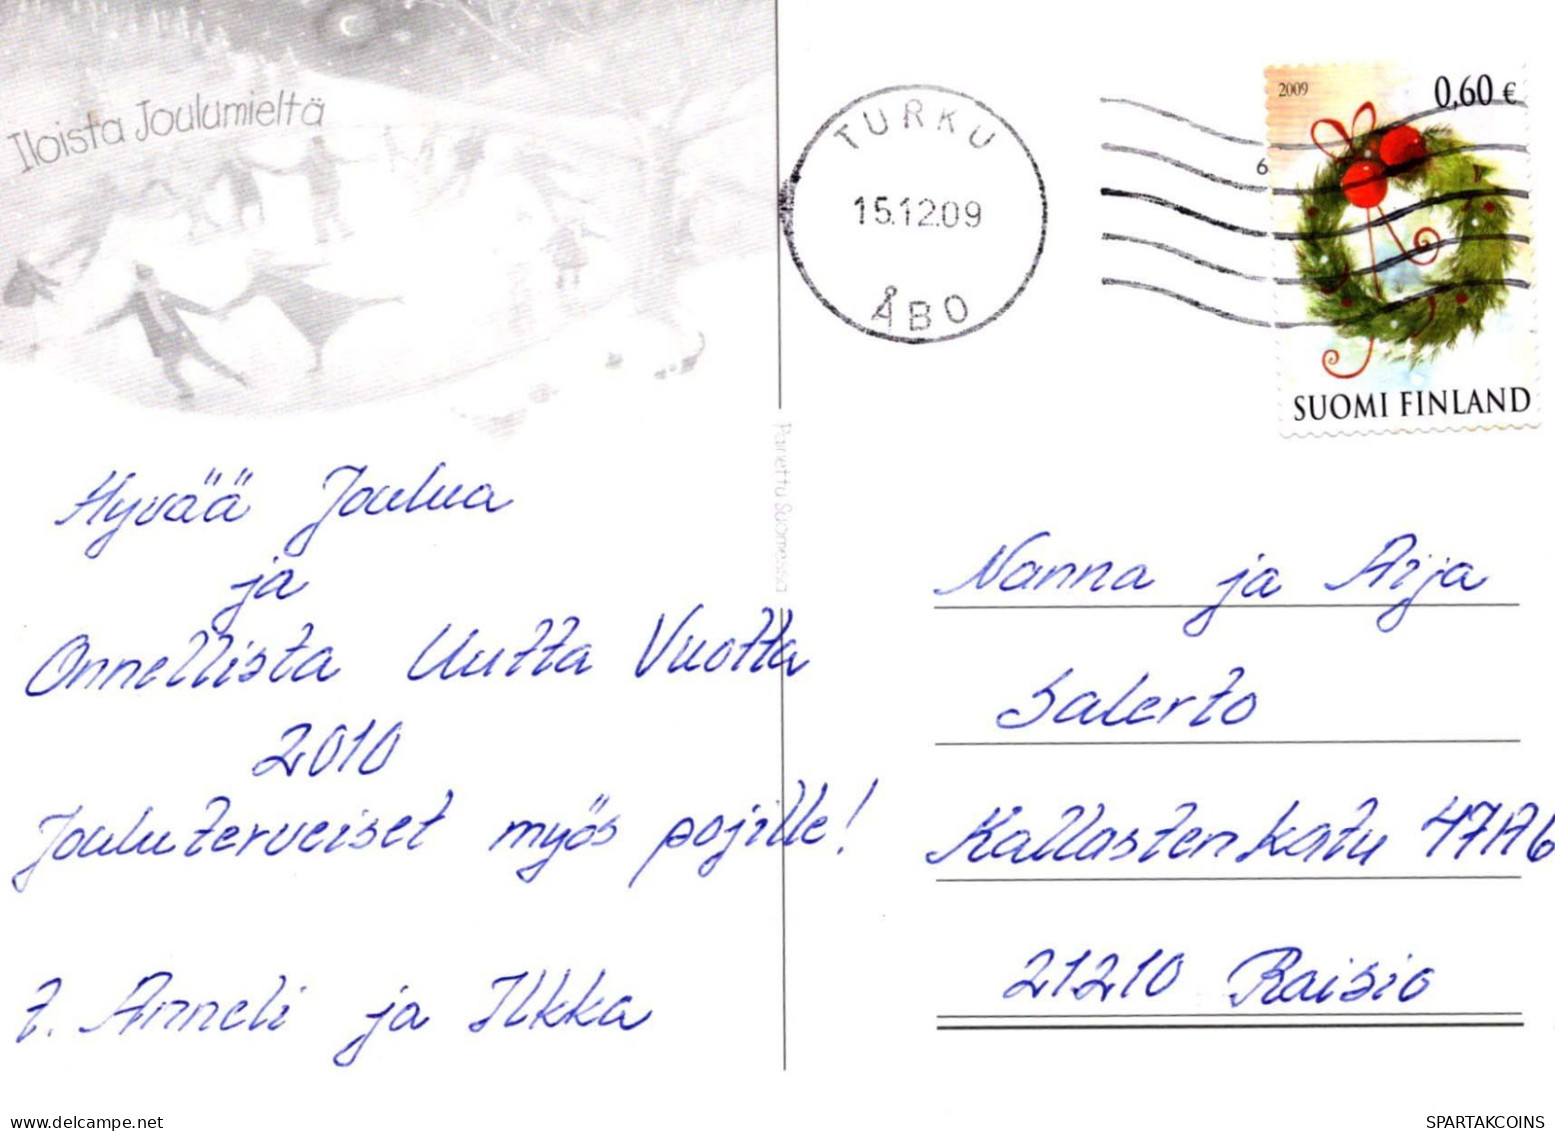 Iloista Joulumieltä
TURKU
15.12.09
ÅBO
6
2009
0,60 €
SUOMI FINLAND
Painettu Suomessa
Hyvää Joulua
ja
Onnellista Uutta Vuotta
2010
Jouluterveiset myös pojille!
t. Anneli ja Ilkka
Nanna ja Arja
Salerto
Kallastenkatu 47A6
21210 Raisio
www.delcampe.net
SPARTAKCOINS